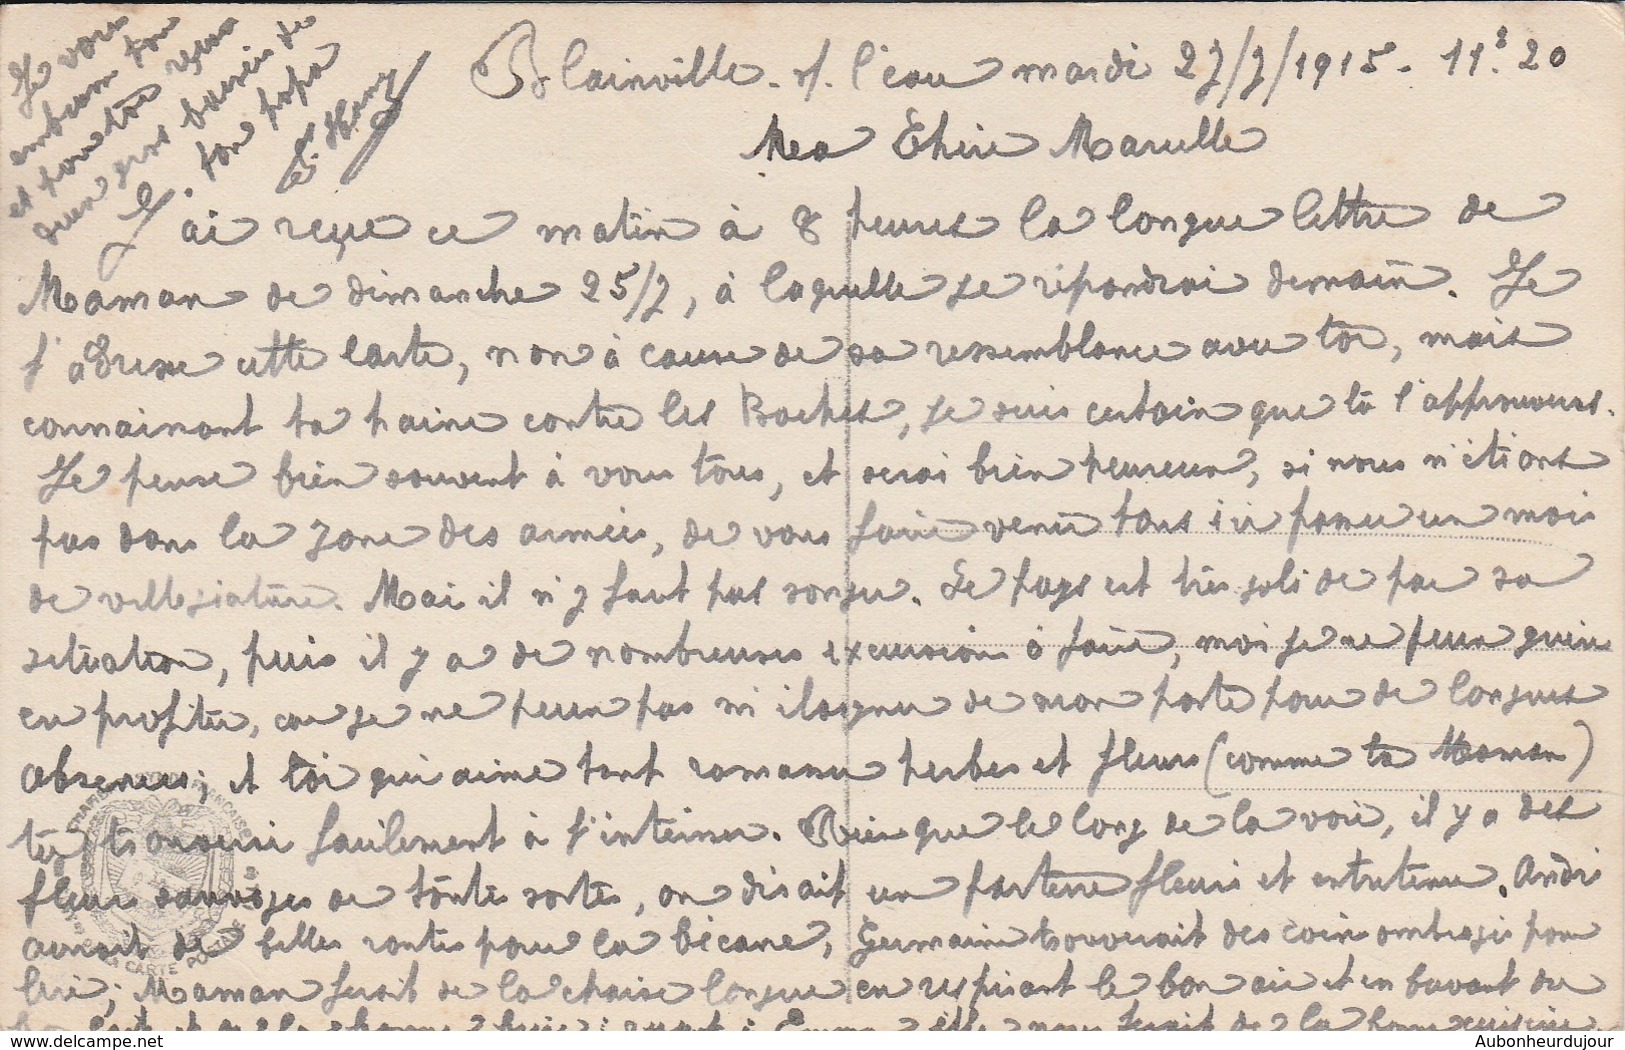 Blainville s/ l'eau mardi 27/7/1915. 11h 20
Ma Chère Marcelle
J'ai reçue ce matin à 8 heures la longue lettre de
Maman de dimanche 25/7, à laquelle je répondrai demain. Je
t'adresse cette carte, non à cause de sa ressemblance avec toi, mais
connaissant ta haine contre les Boches, je suis certain que tu l'approuveras.
Je pense bien souvent à vous tous, et serai bien heureux, si nous n'étions
pas dans la zone des armées, de vous faire venir tous ici passer un mois
de villégiature. Mais il n'y faut pas songer. Le pays est très joli de par sa
situation, puis il y a de nombreuses excursions à faire, moi je ne peux guère
en profiter, car je ne peux pas m'éloigner de mon poste pour de longues
absences; et toi qui aime tant ramasser herbes et fleurs (comme ta Maman)
tu trouverais facilement à t'intéresser. Rien que le long de la voie, il y a des
fleurs sauvages de toute sorte, on dirait un parterre fleuri et entretenu. André
aurait de belles routes pour la bécane, Germaine trouverait des coins ombragés pour
lire; Maman ferait de la chaise longue en respirant le bon air et en buvant du
bon lait et de la bonne bière; quant à Emma, elle nous ferait de la bonne cuisine.
Je vous
embrasse tous
et pour toi reçois
un gros baiser de
ton papa
Henry
LA CARTE POSTALE
Aubonheurdujour
www.delcampe.net